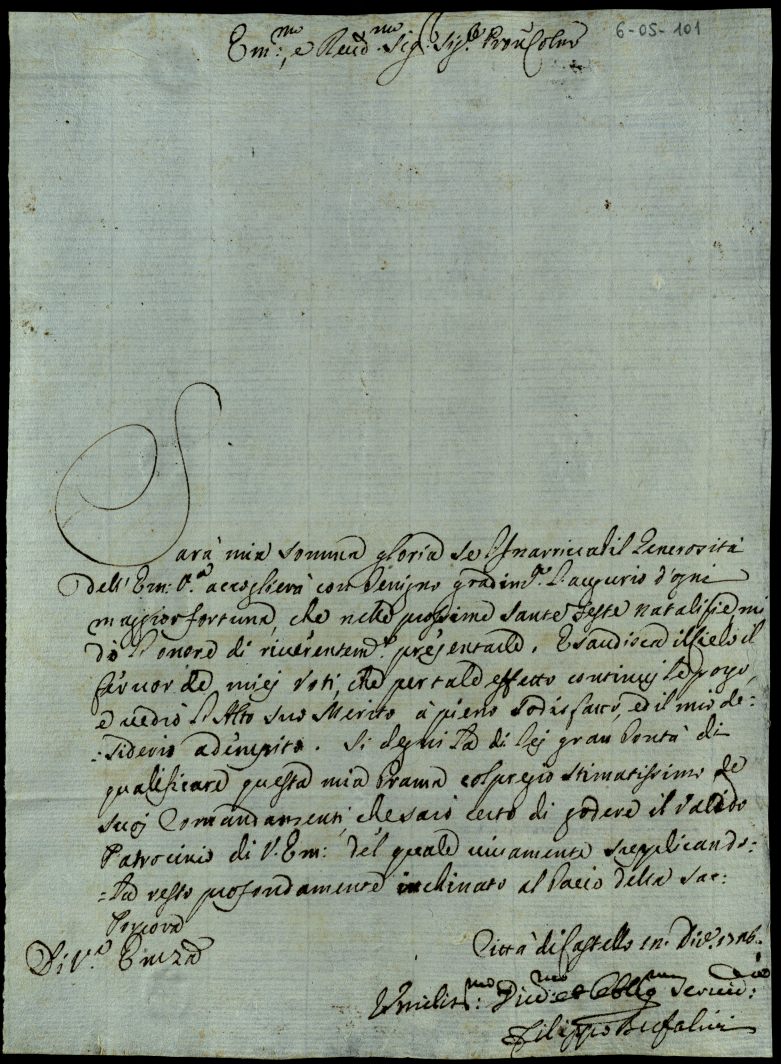 6-05-101
Em:mo, e Reud.mo Sig.r Sig.r Pron Colmo
Sarà mia somma gloria se l'Inarrivabil Generosità
dell'Em: V.a accoglierà con benigno gradim.to l'augurio d'ogni
maggior fortuna, che nelle prossime Sante Feste natalisie, mi
dò l'onore di riverentem.te presentarle. Esaudisca il Cielo il
fervor de miej Voti, che per tale effetto continuj le porgo,
e vedrò l'Alto suo Merito à pieno sodisfatto, ed il mio de:
:siderio adempito. Si degni la di lej gran bontà di
qualificare questa mia brama col pregio stimatissimo de
suoj Comandamenti, che sarò certo di godere il valido
Patrocinio di V. Em: del quale vivamente supplicando:
:la resto profondamente inchinato al bacio della Sac:
Porpora
Di V.a Emza
Città di Castello Dic.e
Umilis:mo Div:mo et Obblig:mo Servid:
Filippo Bufalini